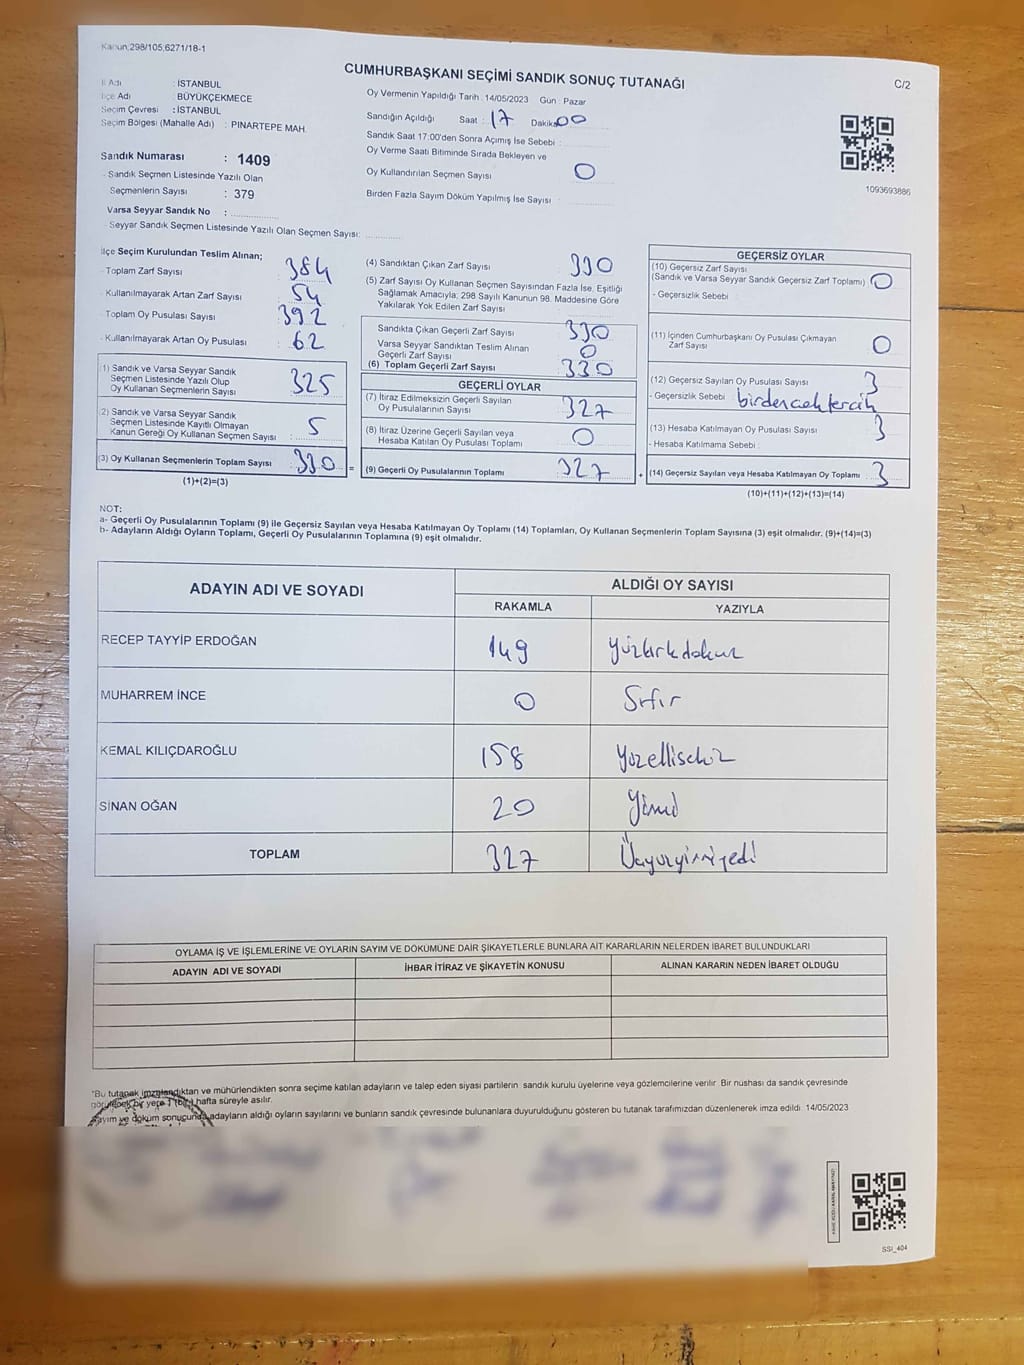 Kanun;298/105,6271/18-1
CUMHURBAŞKANI SEÇİMİ SANDIK SONUÇ TUTANAĞI
C/2
İl Adı : İSTANBUL
İlçe Adı : BÜYÜKÇEKMECE
Seçim Çevresi : İSTANBUL
Seçim Bölgesi (Mahalle Adı) : PINARTEPE MAH.
Sandık Numarası : 1409
Sandık Seçmen Listesinde Yazılı Olan
Seçmenlerin Sayısı : 379
Varsa Seyyar Sandık No :
Seyyar Sandık Seçmen Listesinde Yazılı Olan Seçmen Sayısı:
Oy Vermenin Yapıldığı Tarih : 14/05/2023 Gün : Pazar
Sandığın Açıldığı Saat : 17 Dakika 00
Sandık Saat 17:00'den Sonra Açımış İse Sebebi :
Oy Verme Saati Bitiminde Sırada Bekleyen ve
Oy Kullandırılan Seçmen Sayısı 0
Birden Fazla Sayım Döküm Yapılmış İse Sayısı :
1093693886
İlçe Seçim Kurulundan Teslim Alınan;
Toplam Zarf Sayısı 384
Kullanılmayarak Artan Zarf Sayısı 54
Toplam Oy Pusulası Sayısı 392
Kullanılmayarak Artan Oy Pusulası 62
1) Sandık ve Varsa Seyyar Sandık
Seçmen Listesinde Yazılı Olup
Oy Kullanan Seçmenlerin Sayısı 325
2) Sandık ve Varsa Seyyar Sandık
Seçmen Listesinde Kayıtlı Olmayan
Kanun Gereği Oy Kullanan Seçmen Sayısı : 5
(3) Oy Kullanan Seçmenlerin Toplam Sayısı 330 =
(1)+(2)=(3)
(4) Sandıktan Çıkan Zarf Sayısı 330
(5) Zarf Sayısı Oy Kullanan Seçmen Sayısından Fazla İse, Eşitliği
Sağlamak Amacıyla; 298 Sayılı Kanunun 98. Maddesine Göre
Yakılarak Yok Edilen Zarf Sayısı
Sandıkta Çıkan Geçerli Zarf Sayısı 330
Varsa Seyyar Sandıktan Teslim Alınan
Geçerli Zarf Sayısı 0
(6) Toplam Geçerli Zarf Sayısı 330
GEÇERLİ OYLAR
(7) İtiraz Edilmeksizin Geçerli Sayılan
Oy Pusulalarının Sayısı 327
(8) İtiraz Üzerine Geçerli Sayılan veya
Hesaba Katılan Oy Pusulası Toplamı 0
(9) Geçerli Oy Pusulalarının Toplamı 327 +
GEÇERSİZ OYLAR
(10) Geçersiz Zarf Sayısı
(Sandık ve Varsa Seyyar Sandık Geçersiz Zarf Toplamı) 0
- Geçersizlik Sebebi
(11) İçinden Cumhurbaşkanı Oy Pusulası Çıkmayan
Zarf Sayısı 0
(12) Geçersiz Sayılan Oy Pusulası Sayısı 3
- Geçersizlik Sebebi
(13) Hesaba Katılmayan Oy Pusulası Sayısı 3
- Hesaba Katılmama Sebebi :
(14) Geçersiz Sayılan veya Hesaba Katılmayan Oy Toplamı 3
(10)+(11)+(12)+(13)=(14)
NOT:
a- Geçerli Oy Pusulalarının Toplamı (9) ile Geçersiz Sayılan veya Hesaba Katılmayan Oy Toplamı (14) Toplamları, Oy Kullanan Seçmenlerin Toplam Sayısına (3) eşit olmalıdır. (9)+(14)=(3)
b- Adayların Aldığı Oyların Toplamı, Geçerli Oy Pusulalarının Toplamına (9) eşit olmalıdır.
ADAYIN ADI VE SOYADI ALDIĞI OY SAYISI
RAKAMLA YAZIYLA
RECEP TAYYİP ERDOĞAN 149 yüzkırkdokuz
MUHARREM İNCE 0 Sıfır
KEMAL KILIÇDAROĞLU 158 yüzellisekiz
SİNAN OĞAN 20 Yirmi
TOPLAM 327 Üçyüzyirmiyedi
OYLAMA İŞ VE İŞLEMLERİNE VE OYLARIN SAYIM VE DÖKÜMÜNE DAİR ŞİKAYETLERLE BUNLARA AİT KARARLARIN NELERDEN İBARET BULUNDUKLARI
ADAYIN ADI VE SOYADI İHBAR İTİRAZ VE ŞİKAYETİN KONUSU ALINAN KARARIN NEDEN İBARET OLDUĞU
*Bu tutanak imzalandıktan ve mühürlendikten sonra seçime katılan adayların ve talep eden siyasi partilerin sandık kurulu üyelerine veya gözlemcilerine verilir. Bir nüshası da sandık çevresinde
görülecek bir yere 1 (bir) hafta süreyle asılır.
Sayım ve döküm sonucunda adayların aldığı oyların sayılarını ve bunların sandık çevresinde bulunanlara duyurulduğunu gösteren bu tutanak tarafımızdan düzenlenerek imza edildi. 14/05/2023
SSI_404